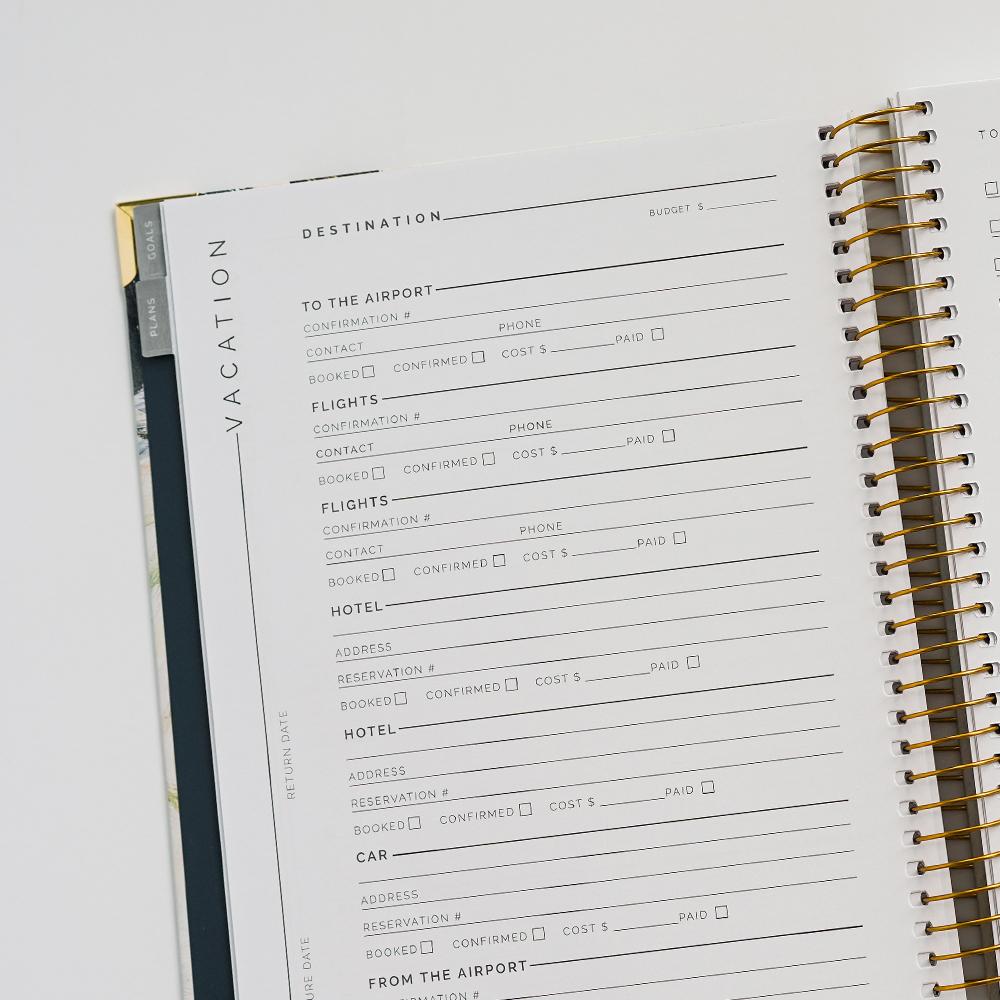 GOALS
PLANS
VACATION
DESTINATION
BUDGET $
TO THE AIRPORT
CONFIRMATION #
CONTACT PHONE
BOOKED CONFIRMED COST $ PAID
FLIGHTS
CONFIRMATION #
CONTACT PHONE
BOOKED CONFIRMED COST $ PAID
FLIGHTS
CONFIRMATION #
CONTACT PHONE
BOOKED CONFIRMED COST $ PAID
HOTEL
ADDRESS
RESERVATION #
BOOKED CONFIRMED COST $ PAID
HOTEL
ADDRESS
RESERVATION #
BOOKED CONFIRMED COST $ PAID
CAR
ADDRESS
RESERVATION #
BOOKED CONFIRMED COST $ PAID
FROM THE AIRPORT
RETURN DATE
DATE
TO